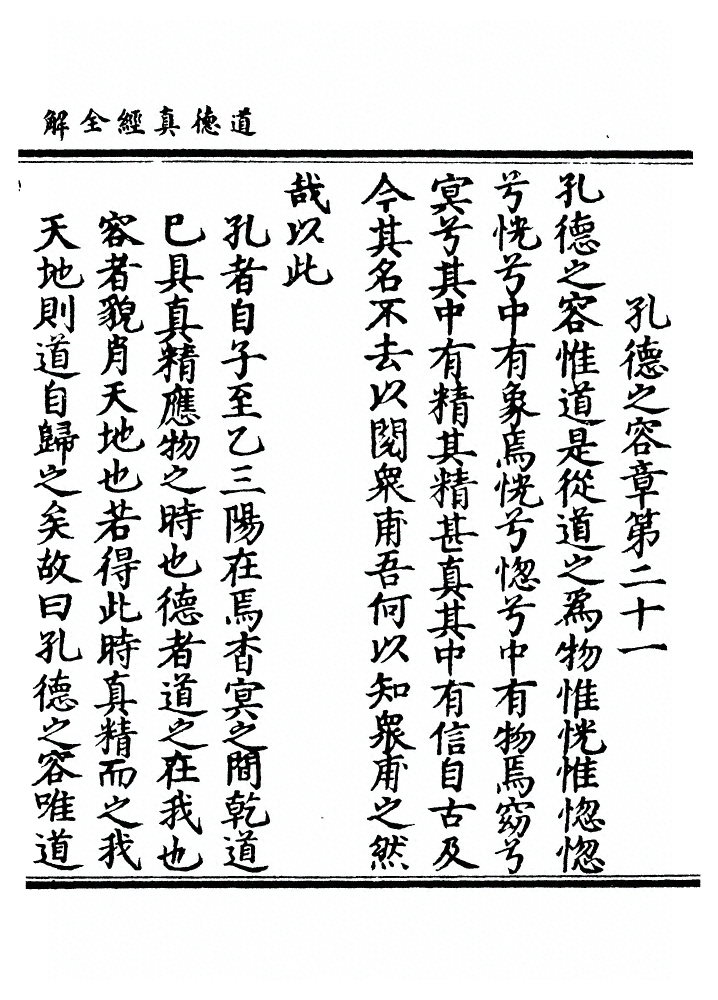 道德真經全解
孔德之容章第二十一
孔德之容惟道是從道之爲物惟恍惟惚惚
兮恍兮中有象焉恍兮惚兮中有物焉窈兮
冥兮其中有精其精甚真其中有信自古及
今其名不去以閱衆甫吾何以知衆甫之然
哉以此
孔者自子至乙三陽在焉杳冥之間乾道
已具真精應物之時也德者道之在我也
容者貌肖天地也若得此時真精而之我
天地則道自歸之矣故曰孔德之容唯道